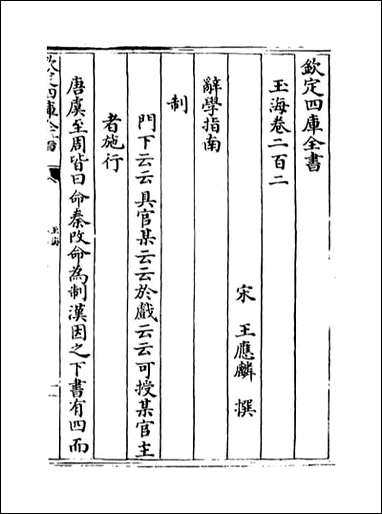 欽定四庫全書
玉海卷二百二
宋 王應麟 撰
辭學指南
制
門下云云具官某云云於戲云云可授某官主
者施行
唐虞至周皆曰命秦改命為制漢因之下書有四而
欽定四庫全書
玉海